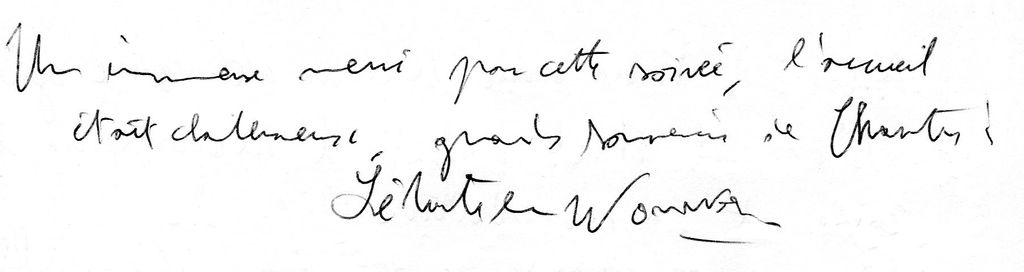 Un immense merci pour cette soirée, l'accueil
était chaleureux, grands souvenirs de Chartres !
Sébastien